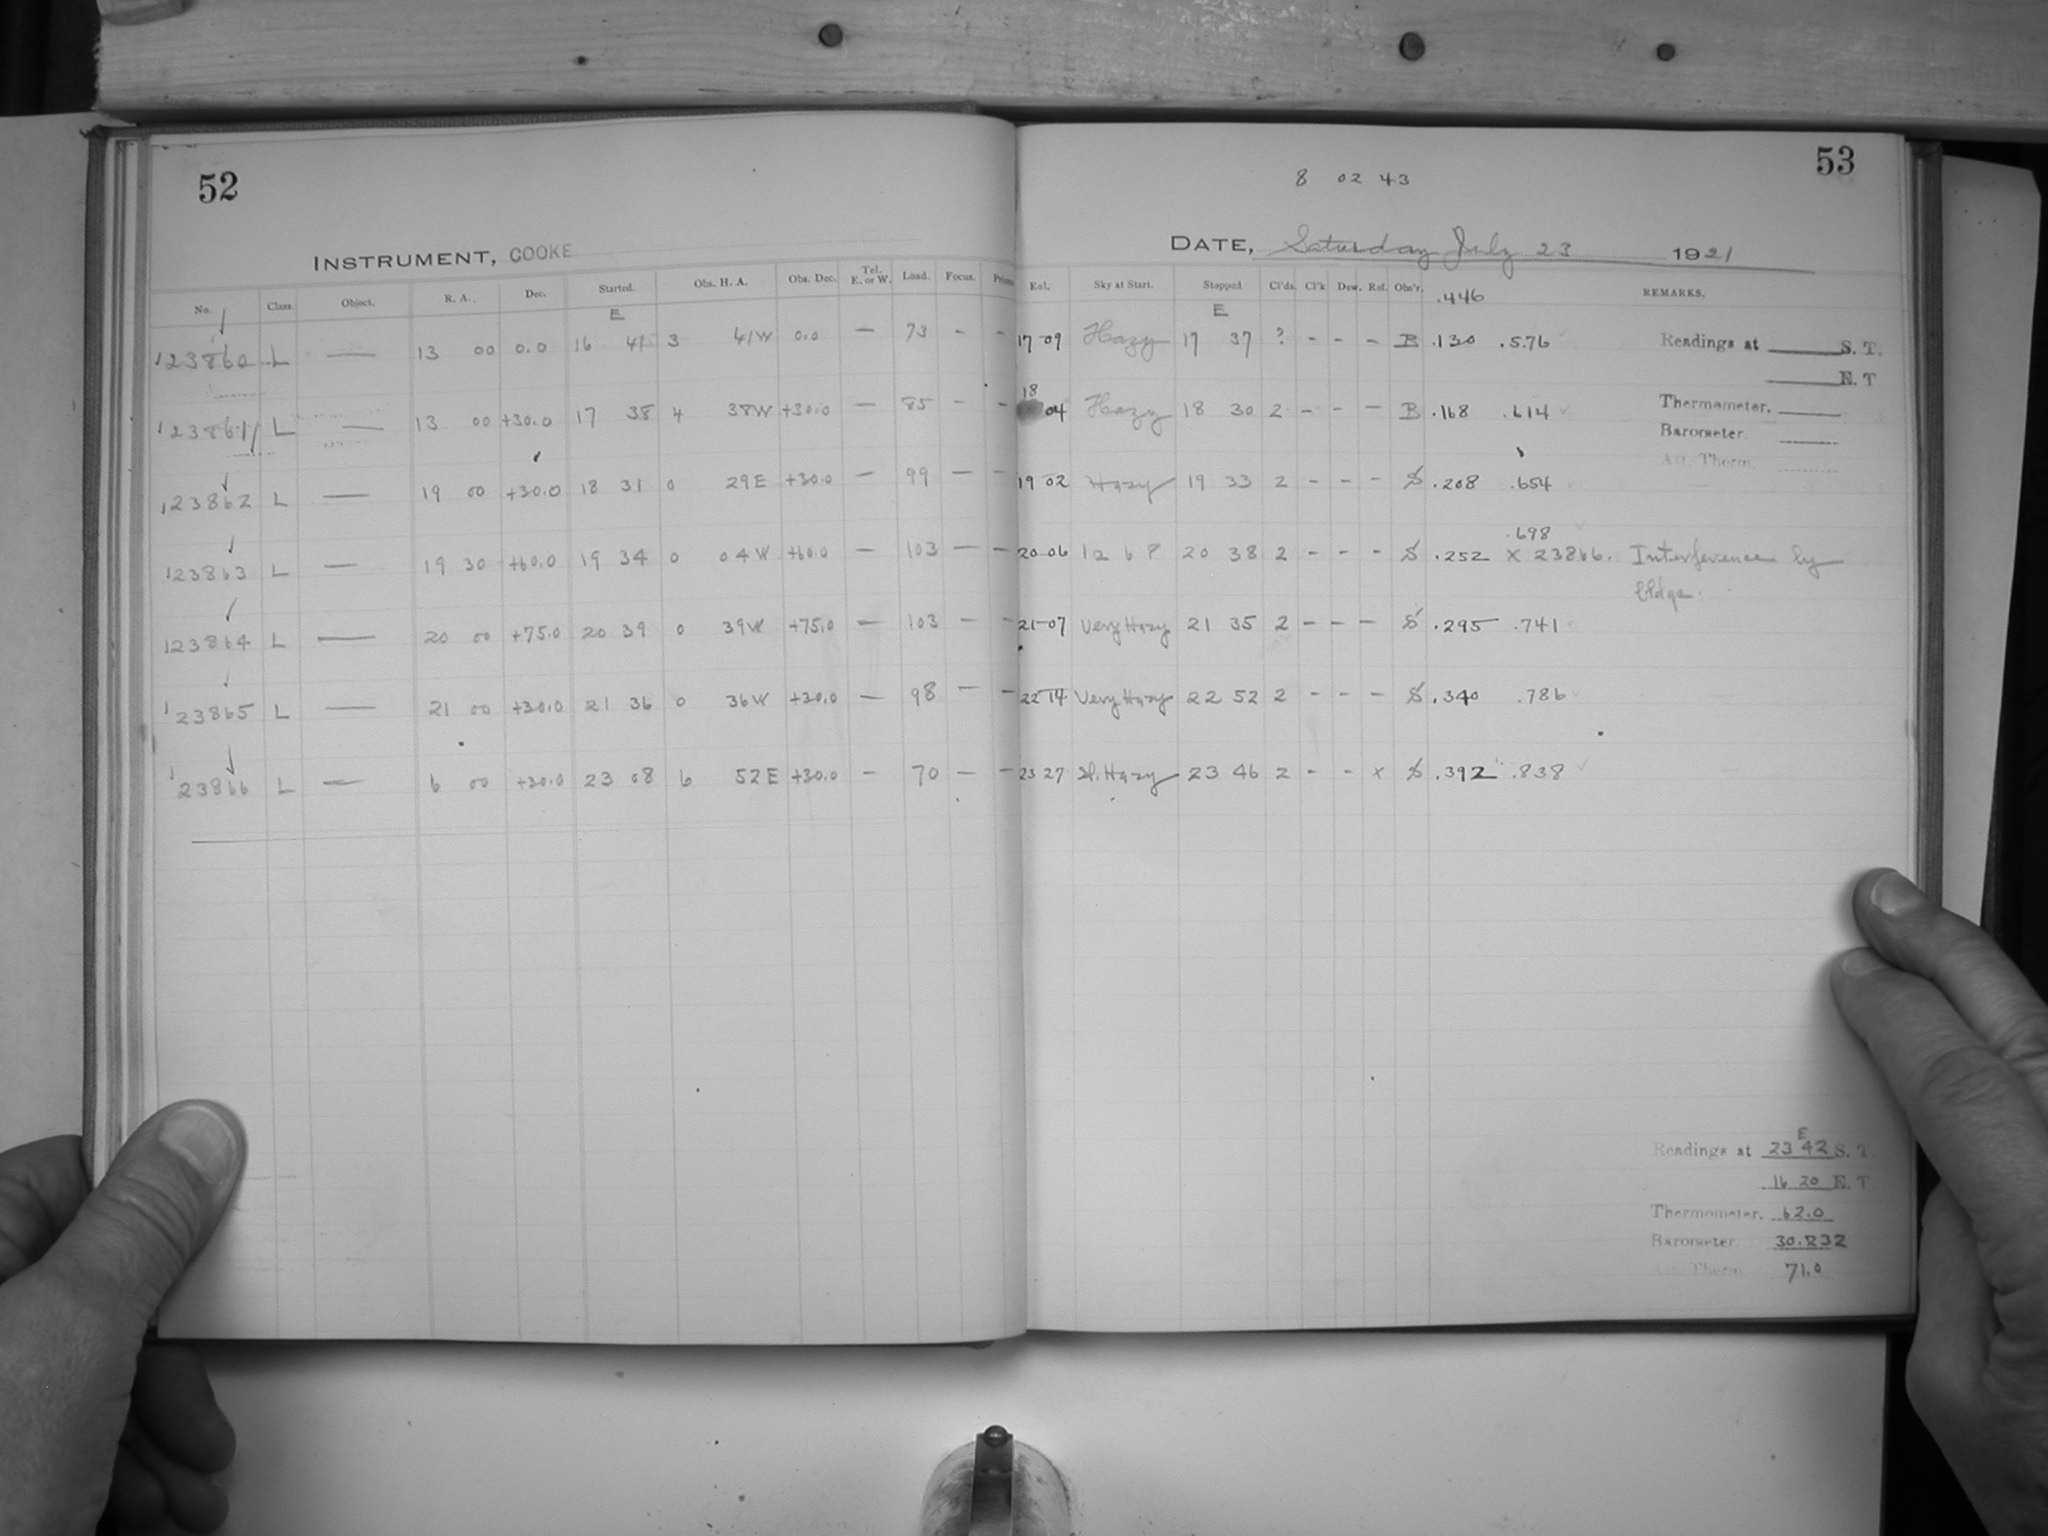 52
INSTRUMENT, COOKE
No. Class. Object. R. A. Dec. Started. Obs. H. A. Obs. Dec. Tel. E. or W. Load. Focus. Prism
E
123860 L — 13 00 0.0 16 41 3 41W 0.0 — 73 - -
123861 L — 13 00 +30.0 17 38 4 38W +30.0 — 85 - -
123862 L — 19 00 +30.0 18 31 0 29E +30.0 — 99 — -
123863 L — 19 30 +60.0 19 34 0 04W +60.0 — 103 — —
123864 L — 20 00 +75.0 20 39 0 39W +75.0 — 103 — —
123865 L — 21 00 +30.0 21 36 0 36W +30.0 — 98 — —
123866 L — 6 00 +30.0 23 08 6 52E +30.0 — 70 — —
53
8 02 43
DATE, Saturday July 23 1921
Ent. Sky at Start. Stopped Cl'ds. Cl'k Dew. Ref. Obs'r. .446 REMARKS.
E
17 09 Hazy 17 37 ? - - - B .130 .576
18 04 Hazy 18 30 2 - - - B .168 .614
19 02 Hazy 19 33 2 - - - S .208 .654
.698
20 06 12 6 P 20 38 2 - - - S .252 x 23866. Interference by
bldgs.
21-07 Very Hazy 21 35 2 - - - S .295 .741
22 14 Very Hazy 22 52 2 - - - S .340 .786
23 27 Sl. Hazy 23 46 2 - - x S .392 .838
Readings at ____ S. T.
____ E. T
Thermometer. ____
Barometer. ____
Att. Therm.
E
Readings at 23 42 S. T.
16 20 E. T
Thermometer. 62.0
Barometer 30.232
Att. Therm. 71.0